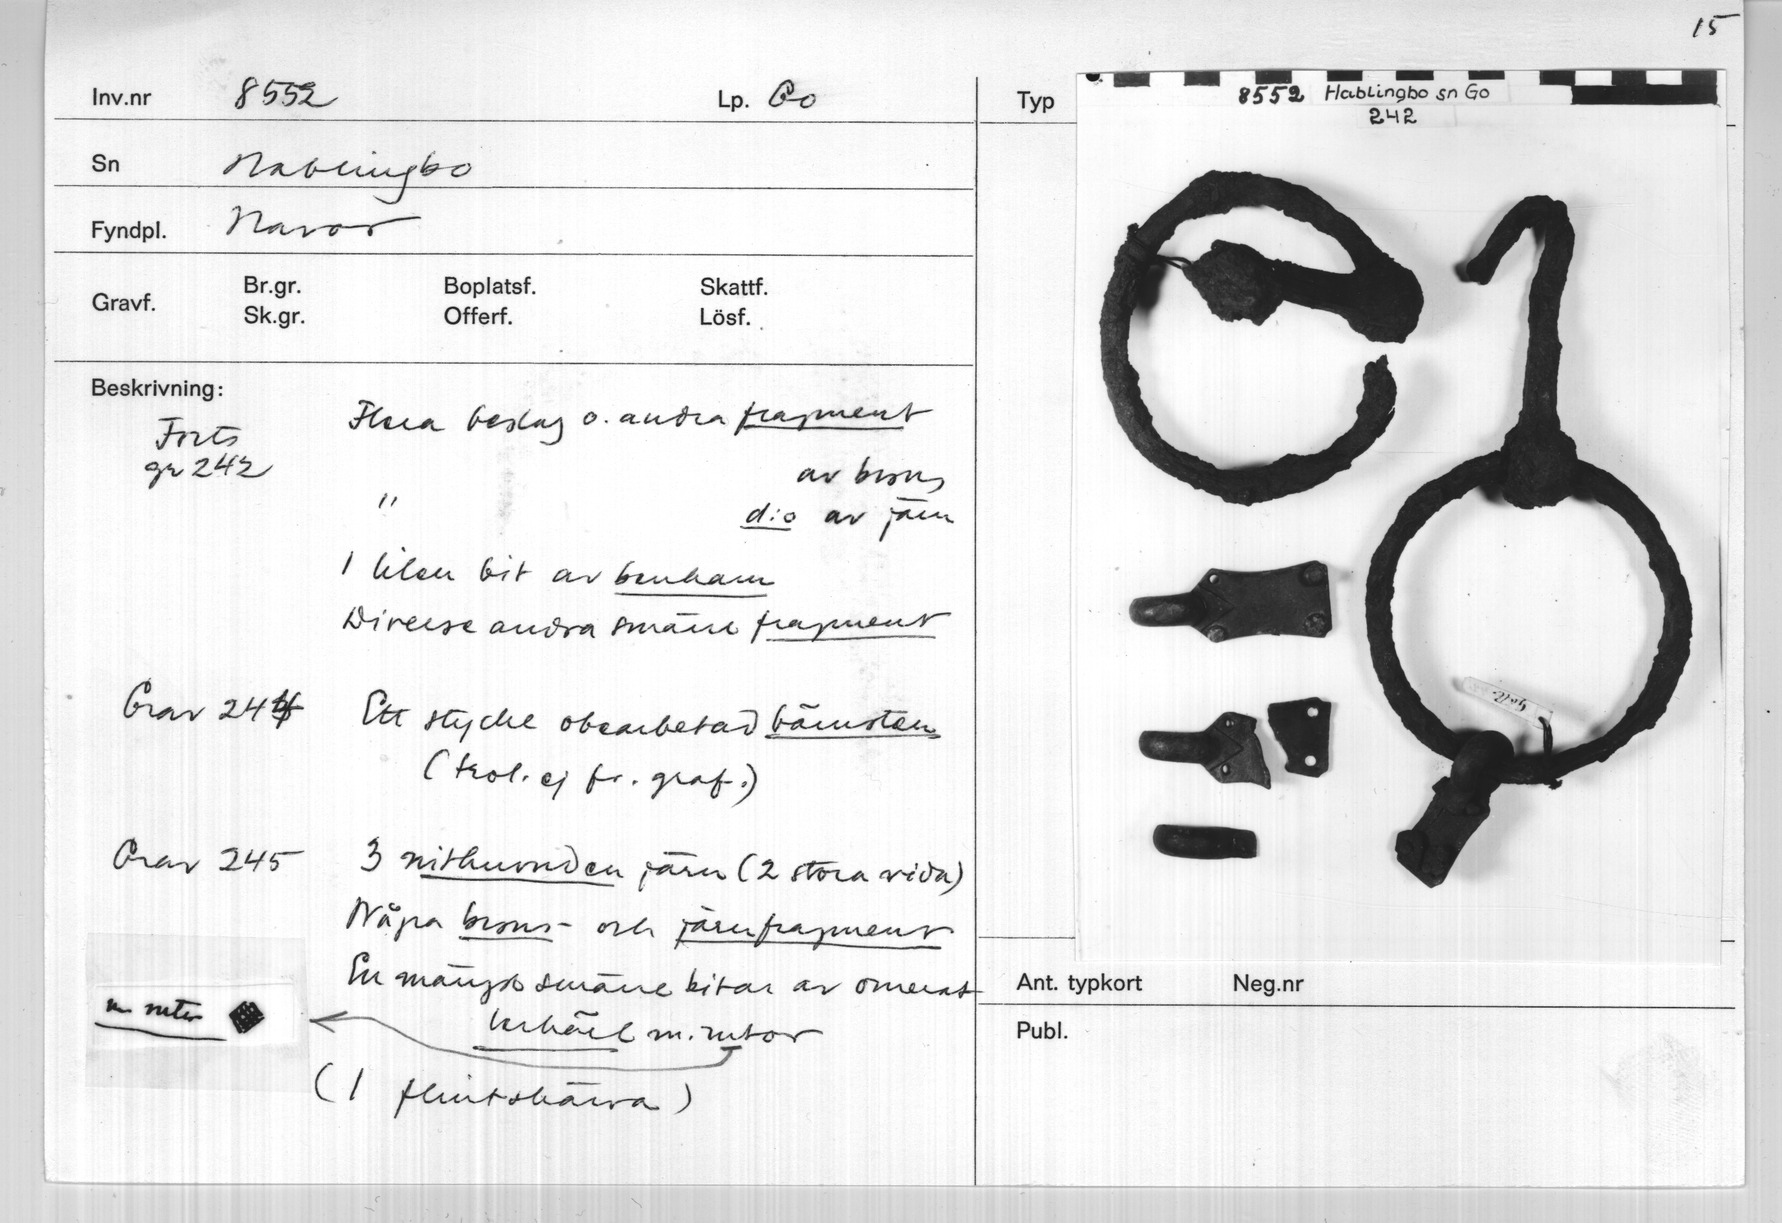 15
Inv.nr 8552 Lp. Go
Sn Hablingbo
Fyndpl. Havor
Gravf. Br.gr. Boplatsf. Skattf.
Sk.gr. Offerf. Lösf.
Beskrivning:
Forts
gr 242
Flera beslag o. andra fragment
av brons
" d:o av järn
1 liten bit av benkam
Diverse andra smärre fragment
Grav 244 Ett stycke obearbetad bärnsten
(trol. ej fr. graf.)
Grav 245 3 nithuvuden järn (2 stora vida)
Några brons- och järnfragment
En mängd smärre bitar av ornerat
lerkärl m. rutor
m rutor
(1 flintskärva)
Typ
8552 Hablingbo sn Go
242
Ant. typkort Neg.nr
Publ.